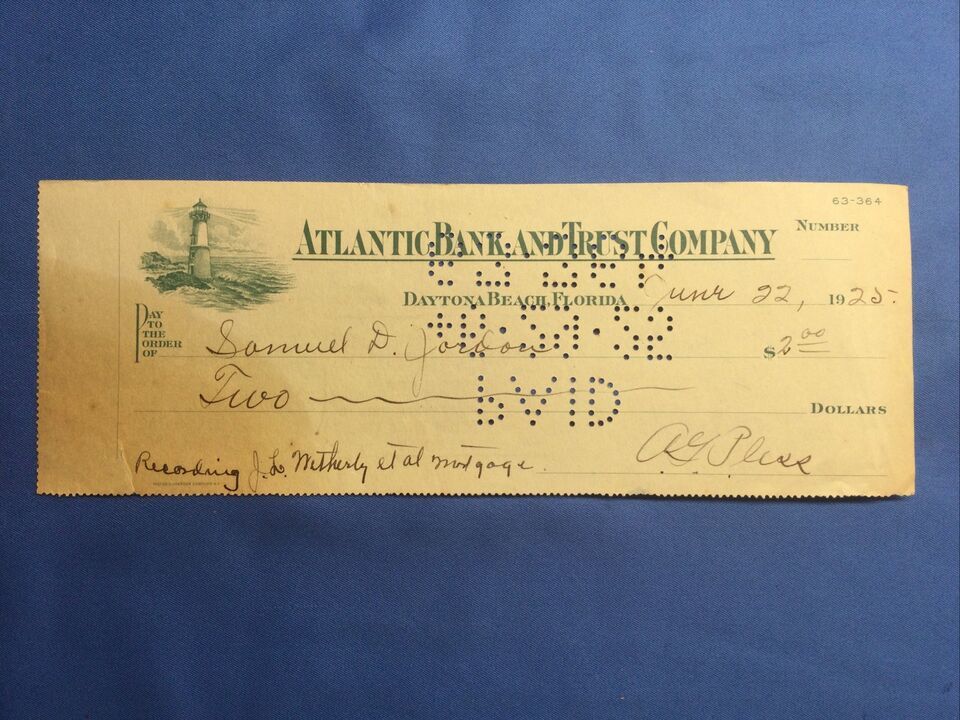 63-364
NUMBER
ATLANTIC BANK AND TRUST COMPANY
DAYTONA BEACH, FLORIDA June 22, 1925.
PAY
TO
THE
ORDER
OF
Samuel D. Jordan $2 00
Two DOLLARS
PAID
Recording J. L. Wetherly et al mortgage.
A G Pless